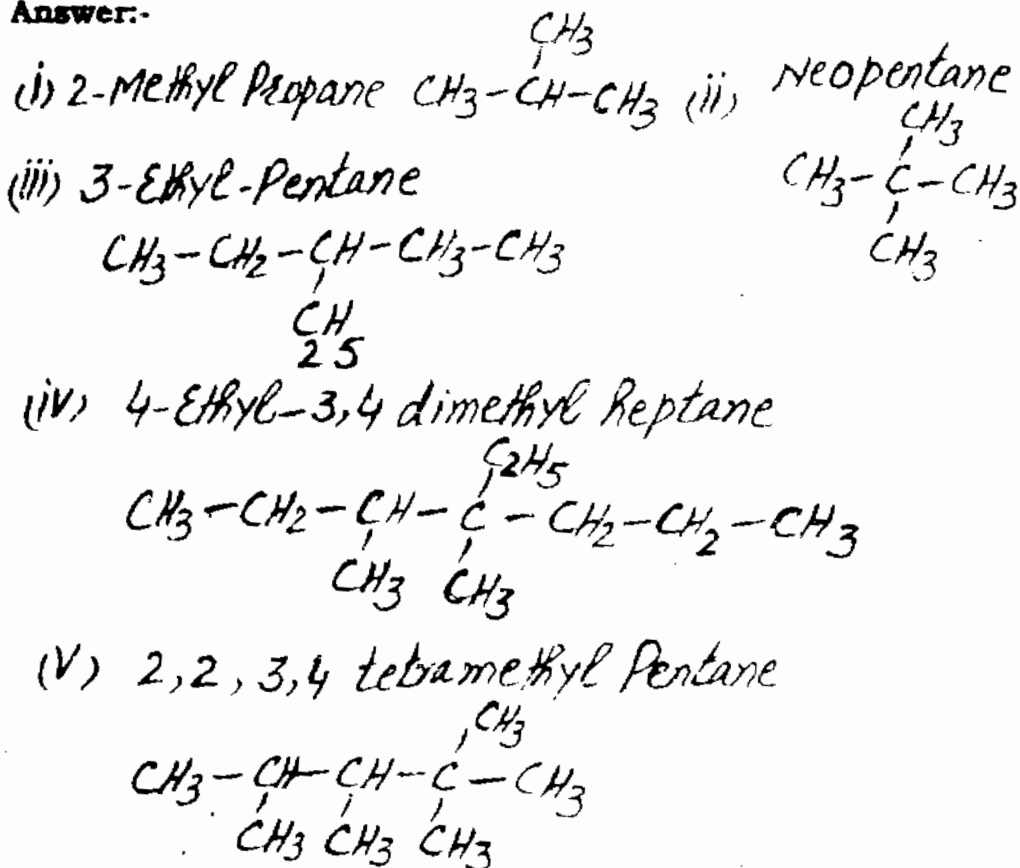 Answer:-
CH3
(i) 2-Methyl Propane CH3-CH-CH3 (ii) Neopentane
CH3
CH3-C-CH3
CH3
(iii) 3-Ethyl-Pentane
CH3-CH2-CH-CH3-CH3
CH
2 5
(iv) 4-Ethyl-3,4 dimethyl heptane
C2H5
CH3-CH2-CH-C-CH2-CH2-CH3
CH3 CH3
(V) 2,2,3,4 tetramethyl Pentane
CH3
CH3-CH-CH-C-CH3
CH3 CH3 CH3